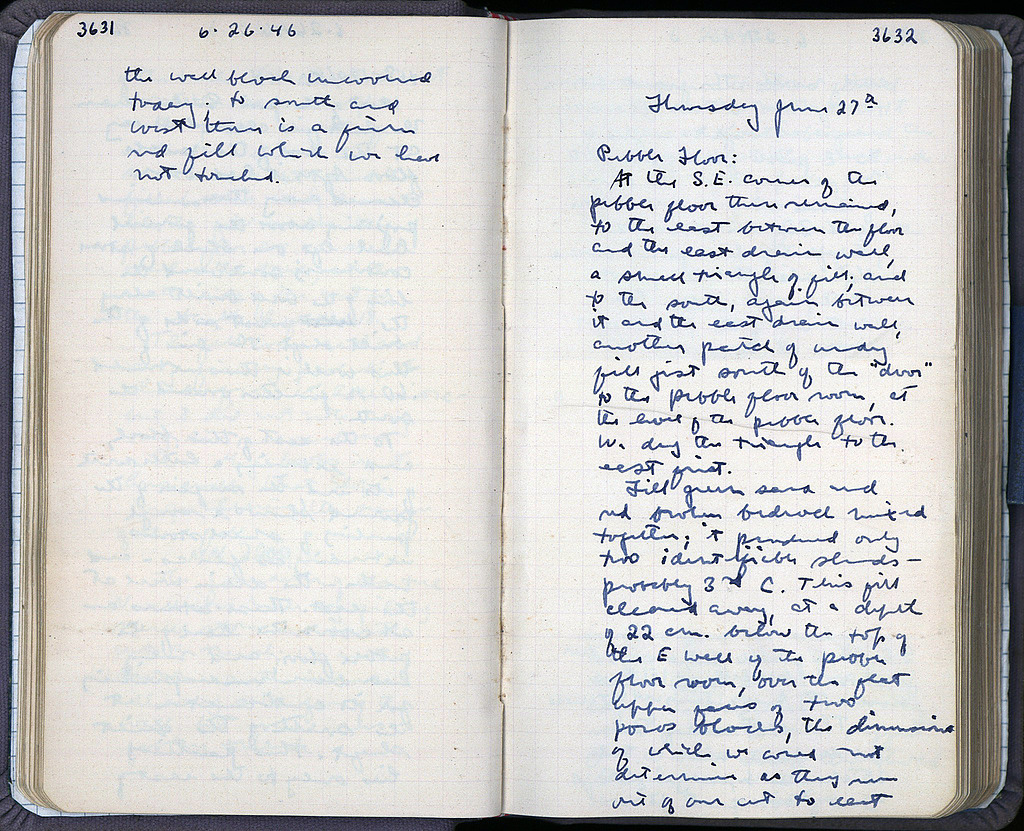 3631 6·26·46
the wall block uncovered
today; to south and
west there is a firm
red fill which we have
not touched.
3632
Thursday June 27th
Pebble Floor:
At the S.E. corner of the
pebble floor there remained,
to the east between the floor
and the east drain wall,
a small triangle of fill, and
to the south, again between
it and the east drain wall,
another patch of undug
fill just south of the "door"
to the pebble floor room, at
the level of the pebble floor.
We dug the triangle to the
east first.
Fill green sand and
red broken bedrock mixed
together; it produced only
two identifiable sherds –
probably 3rd C. This fill
cleared away, at a depth
of 22 cm. below the top of
the E wall of the pebble
floor room, over the flat
upper faces of two
poros blocks, the dimensions
of which we could not
determine as they run
out of our cut to east